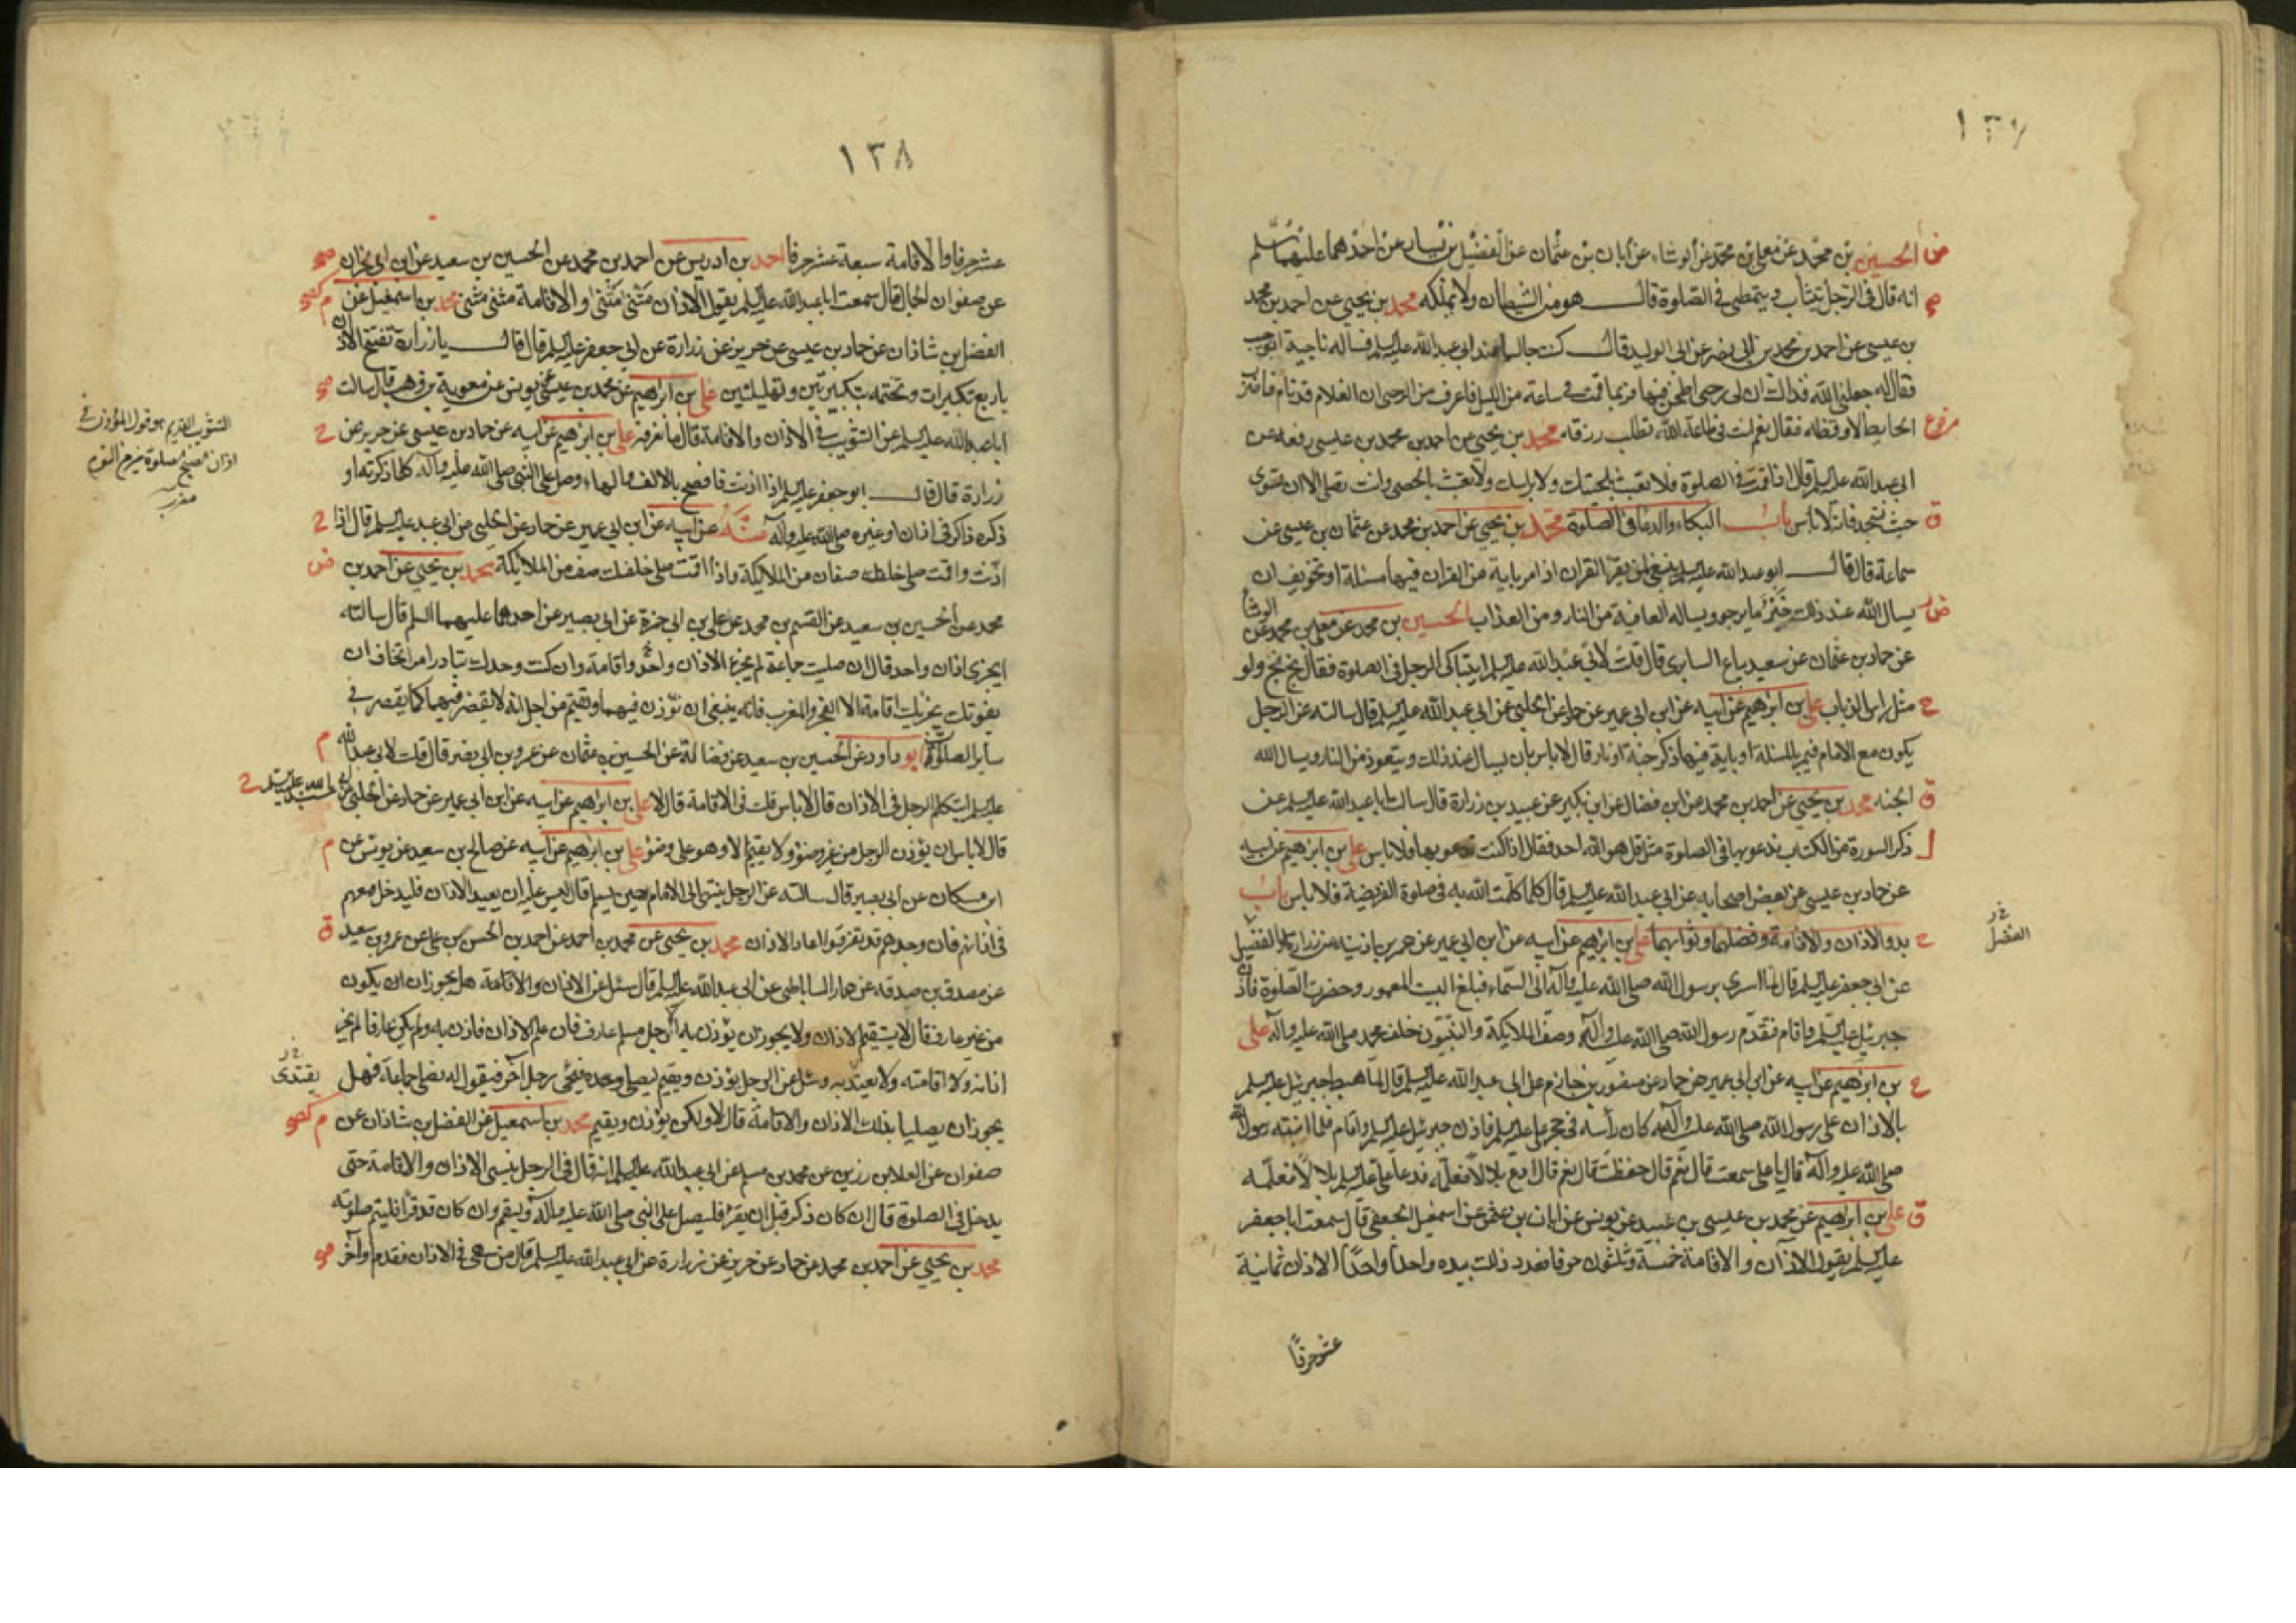 ١٣٧
الحسين بن محمد عن معلى بن محمد عن الوشاء عن أبان بن عثمان عن الفضيل بن يسار عن أحدهما عليهما السلم
انه قال فى الرجل يتثأب ويتمطى فى الصلوة قال هو من الشيطان ولا يملكه محمد بن يحيى عن احمد بن محمد
بن عيسى عن احمد بن محمد بن ابى نصر عن ابى الوليد قال كنت جالسا عند ابى عبد الله عليه السلم فساله ناجية ابو حبيب
فقال له جعلنى الله فداك ان لى رحى اطحن فيها فربما قمت فى ساعة من الليل فاعرف من الرحى ان الغلام قد نام فاضرب
الحايط لاوقظه فقال نعم انت فى طاعة الله تطلب رزقه محمد بن يحيى عن احمد بن محمد بن عيسى رفعه عن
ابى عبد الله عليه السلم قال اذا قمت فى الصلوة فلا تعبث بلحيتك ولا براسك ولا تعبث بالحصى وانت تصلى الا ان تسوى
حيث تسجد فانه لا باس باب البكاء والدعا فى الصلوة محمد بن يحيى عن احمد بن محمد عن عثمان بن عيسى عن
سماعة قال قال ابو عبد الله عليه السلم ينبغى لمن يقرأ القران اذا مر باية من القران فيها مسئلة او تخويف ان
يسال الله عند ذلك خير ما يرجو ويساله العافية من النار ومن العذاب الحسين بن محمد عن معلى بن محمد عن الوشا
عن حماد بن عثمان عن سعيد بياع السابرى قال قلت لابى عبد الله عليه السلم ايتباكى الرجل فى الصلوة فقال بخ بخ ولو
مثل راس الذباب على بن ابرهيم عن ابيه عن ابن ابى عمير عن حماد عن الحلبى عن ابى عبد الله عليه السلم قال سالته عن الرجل
يكون مع الامام فيمر بالمسئلة او باية فيها ذكر جنة او نار قال لا باس بان يسال عند ذلك ويتعوذ من النار ويسال الله
الجنه محمد بن يحيى عن احمد بن محمد عن ابن فضال عن ابن بكير عن عبيد بن زرارة قال سالت ابا عبد الله عليه السلم عن
ذكر السورة من الكتاب ندعو بها فى الصلوة مثل قل هو الله احد فقال اذا كنت تدعو بها فلا باس على بن ابرهيم عن ابيه
عن حماد بن عيسى عن بعض اصحابه عن ابى عبد الله عليه السلم قال كلما كلمت الله به فى صلوة الفريضة فلا باس باب
بدو الاذان والاقامة وفضلهما وثوابهما على بن ابرهيم عن ابيه عن ابن ابى عمير عن عمر بن اذينه عن زرارة والفضيل
عن ابى جعفر عليه السلم قال لما اسرى برسول الله صلى الله عليه وآله الى السماء فبلغ البيت المعمور وحضرت الصلوة فاذن
جبرئيل عليه السلم واقام فتقدم رسول الله صلى الله عليه وآله وصف الملايكة والنبيون خلف محمد صلى الله عليه وآله على
بن ابرهيم عن ابيه عن ابن ابى عمير عن حماد عن منصور بن حازم عن ابى عبد الله عليه السلم قال لما هبط جبرئيل عليه السلم
بالاذان على رسول الله صلى الله عليه وآله كان رأسه فى حجر على عليه السلم فاذن جبرئيل عليه السلم واقام فلما انتبه رسول الله
صلى الله عليه وآله قال يا على سمعت قال نعم قال حفظت قال نعم قال ادع بلالا فعلمه فدعا على عليه السلم بلالا فعلمه
على بن ابرهيم عن محمد بن عيسى بن عبيد عن يونس عن ابان بن عثمن عن اسمعيل الجعفى قال سمعت ابا جعفر
عليه السلم يقول الاذان والاقامة خمسة وثلثون حرفا فعدد ذلك بيده واحدا واحدا الاذان ثمانية
عشر حرفا
الفضل
١٣٨
عشر حرفا والاقامة سبعة عشر حرفا احمد بن ادريس عن احمد بن محمد عن الحسين بن سعيد عن ابن ابى نجران
عن صفوان الجمال قال سمعت ابا عبد الله عليه السلم يقول الاذان مثنى مثنى والاقامة مثنى مثنى محمد بن اسمعيل عن
الفضل بن شاذان عن حماد بن عيسى عن حريز عن زرارة عن ابى جعفر عليه السلم قال قال يا زرارة تفتتح الاذان
باربع تكبيرات وتختمه بتكبيرتين وتهليلتين على بن ابرهيم عن محمد بن عيسى عن يونس عن معوية بن وهب قال سالت
ابا عبد الله عليه السلم عن التثويب فى الاذان والاقامة قال ما نعرفه على بن ابرهيم عن ابيه عن حماد بن عيسى عن حريز عن
زرارة قال قال ابو جعفر عليه السلم اذا اذنت فافصح بالالف والهاء وصل على النبى صلى الله عليه وآله كلما ذكرته او
ذكره ذاكر فى اذان او غيره صلى الله عليه وآله عن ابيه عن ابن ابى عمير عن حماد عن الحلبى عن ابى عبد عليه السلم قال اذا
اذنت واقمت صلى خلفك صفان من الملايكة واذا اقمت صلى خلفك صف من الملايكة محمد بن يحيى عن احمد بن
محمد عن الحسين بن سعيد عن القسم بن محمد عن على بن ابى حمزة عن ابى بصير عن احدهما عليهما السلم قال سالته
ايجزى اذان واحد قال ان صليت جماعة لم يجز الا اذان واحد واقامة وان كنت وحدك تبادر امرا تخاف ان
يفوتك يجزيك اقامة الا الفجر والمغرب فانه ينبغى ان تؤذن فيهما وتقيم من اجل انه لا يقصر فيهما كما يقصر فى
ساير الصلوة ابو داود عن الحسين بن سعيد عن فضالة عن الحسين بن عثمان عن عمرو بن ابى نصر قال قلت لابى عبد الله
عليه السلم ايتكلم الرجل فى الاذان قال لا باس قلت فى الاقامة قال لا على بن ابرهيم عن ابيه عن ابن ابى عمير عن حماد عن الحلبى
قال لا باس ان يؤذن الرجل من غير وضؤ ولا يقيم الا وهو على وضؤ على بن ابرهيم عن ابيه عن صالح بن سعيد عن يونس عن
ابن مسكان عن ابى بصير قال سالته عن الرجل ينتهى الى الامام حين يسلم قال ليس عليه ان يعيد الاذان فليدخل معهم
فى اذانهم فان وجدهم قد تفرقوا اعاد الاذان محمد بن يحيى عن محمد بن احمد عن احمد بن الحسن بن على عن عمرو بن سعيد
عن مصدق بن صدقه عن عمار الساباطى عن ابى عبد الله عليه السلم قال سئل عن الاذان والاقامة هل يجوز ان يكون
من غير عارف قال لا يستقيم الاذان ولا يجوز ان يؤذن به الا رجل مسلم عارف فان علم الاذان فاذن به ولم يكن عارفا لم يجز
اذانه ولا اقامته ولا يعتد به وسئل عن الرجل يؤذن ويقيم ليصلى وحده فيجئ رجل آخر فيقول له نصلى جماعة فهل
يجوز ان يصليا بذلك الاذان والاقامة قال لا ولكن يؤذن ويقيم محمد بن اسمعيل عن الفضل بن شاذان عن
صفوان عن العلا بن رزين عن محمد بن مسلم عن ابى عبد الله عليه السلم انه قال فى الرجل ينسى الاذان والاقامة حتى
يدخل فى الصلوة قال ان كان ذكر قبل ان يقرأ فليصل على النبى صلى الله عليه وآله وليقم وان كان قد قرأ فليتم صلوته
محمد بن يحيى عن احمد بن محمد عن حماد عن حريز عن زرارة عن ابى عبد الله عليه السلم قال من سهى فى الاذان فقدم او آخر
التثويب القديم هو قول المؤذن فى
اذان الصبح الصلوة خير من النوم
مغرب
يقتدى